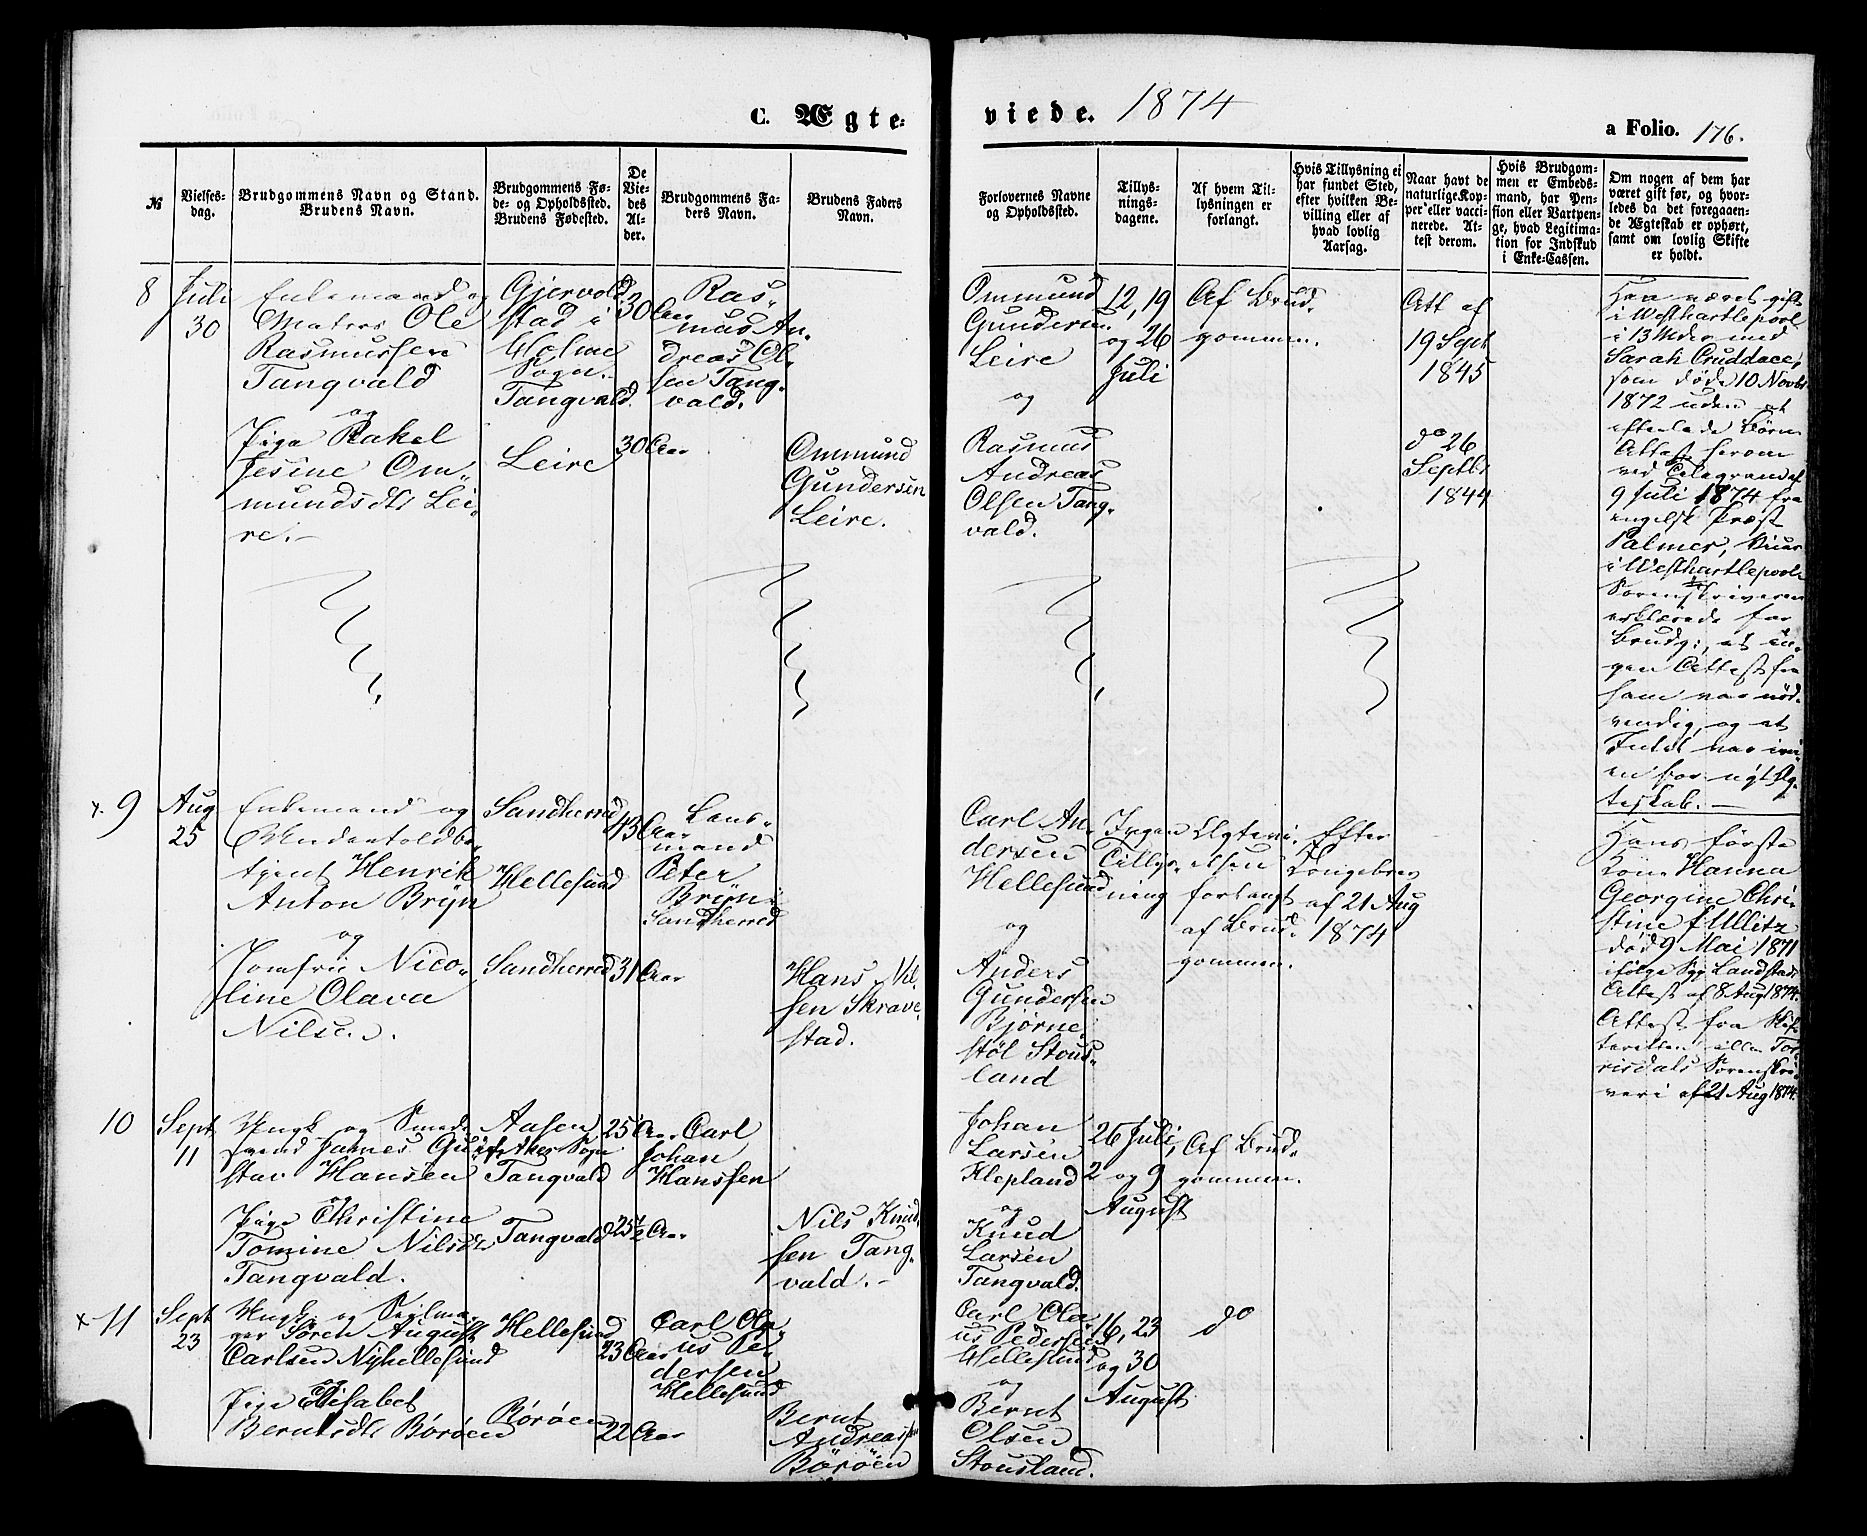 C. Ægte-
viede. 1874
a Folio. 176.
№
Vielses-
dag.
Brudgommens Navn og Stand.
Brudens Navn.
Brudgommens Fø-
de- og Opholdssted.
Brudens Fødested.
De
Vie-
des
Al-
der.
Brudgommens Fa-
ders Navn.
Brudens Faders
Navn.
Forlovernes Navne
og Opholdssted.
Tillys-
nings-
dagene.
Af hvem Til-
lysningen er
forlangt.
Hvis Tillysning ei
har fundet Sted,
efter hvilken Be-
villing eller af
hvad lovlig
Aarsag.
Naar havt de
naturlige Kop-
per eller vacci-
nerede. At-
test derom.
Hvis Brudgom-
men er Embeds-
mand, har Pen-
sion eller Vartpen-
ge, hvad Legitima-
tion for Indskud
i Enke-Cassen.
Om nogen af dem har
været gift før, og hvor-
ledes da det foregaaen-
de Ægteskab er ophørt,
samt om lovlig Skifte
er holdt.
8
Juli
30
Enkemand og
Matros Ole
Rasmussen
Tangvald
og
Pige Rakel
Jesine Om-
mundsdtr Lei-
re.-
Gjervold-
stad i
Holme
Sogn.
Tangvald.
Leire
30 Aar
30 Aar
Ras-
mus An-
dreas Ol-
sen Tang-
vald.
Ommund
Gundersen
Leire.
Ommund
Gundersen
Leire
og
Rasmus
Andreas
Olsen Tang-
vald.
12, 19
og 26
Juli
Af Brud-
gommen.
Att af
19 Sept
1845
do 26
Septbr
1844
Han været gift
i Westhartlepool
i 13 Mdr med
Sarah Cruddace,
som døde 10 Novbr
1872 uden at
efterlade Børn
Attest herom
ved Telegram af
9 Juli 1874 fra
engelsk Præst
Palmer, Vicar
i Westhartlepool
Sorenskriveren
erklærede for
Brudg:, at in-
gen Attest fra
ham var nød-
vendig, og at
Intet var ivei-
en for nyt Æg-
teskab.-
x. 9
Aug
25
Enkemand og
Undertoldbe-
tjent Henrik
Anton Bryn
og
Jomfru Nico-
line Olava
Nilsen.
Sandherred
Hellesund
Sandherred
43 Aar
31 Aar
Lens-
mand
Peter
Bryn
Sandherred
Hans Nil-
sen Skrave-
stad.
Carl An-
dersen
Hellesund
og
Anders
Gundersen
Bjørne-
støl Stous-
land
Ingen
Tillys-
ning
Ægtevi-
elsen
forlangt
af Brud-
gommen.
Efter
Kongebrev
af 21 Aug
1874
Hans første
Kone Hanna
Georgine Chri-
stine f Ullitz
død 9 Mai 1871
ifølge Sgp Landstads
Attest af 8 Aug 1874.
Attest fra Skif-
teretten i
risdals Sorenskri-
veri af 21 Aug 1874.
10
Sept
11
Ungk og
svend James Gu-
stav Hansen
og
Pige Christine
Tomine Nilsdtr
Tangvald.
Aasen
Sogn
Tangvald
Tangvald
25 Aar
25½ Aar
Carl
Johan
Hanssen
Nils Knud-
sen Tang-
vald.-
Johan
Larsen
Klepland
og
Knud
Larsen
Tangvald.
26 Juli,
2 og 9
August
Af Brud-
gommen.
x 11
Sept
23
Ungk og Seilma-
ger Søren August
Carlsen Nyhellesund
og
Pige Elisabet
Berntsdtr Børøen
Hellesund
Børøen
23 Aar
22 Aar
Carl Ola-
us Pe-
dersen
Hellesund
Bernt
Andreassen
Børøen
Carl Ola-
us Pedersen
Hellesund
og
Bernt
Olsen
Stousland.
16, 23
og 30
August
do